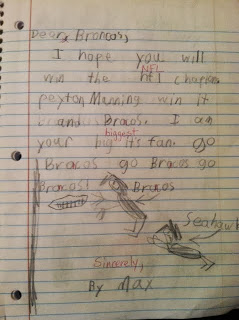 Dear Broncos,
I hope you will
NFL
win the nfl chapion
peyton Manning win it
and Bracos. I am
biggest
your big it's fan. go
Bracos go Bracos go
Bracos!
Bracos
Seahawk
Sincerely,
By Max